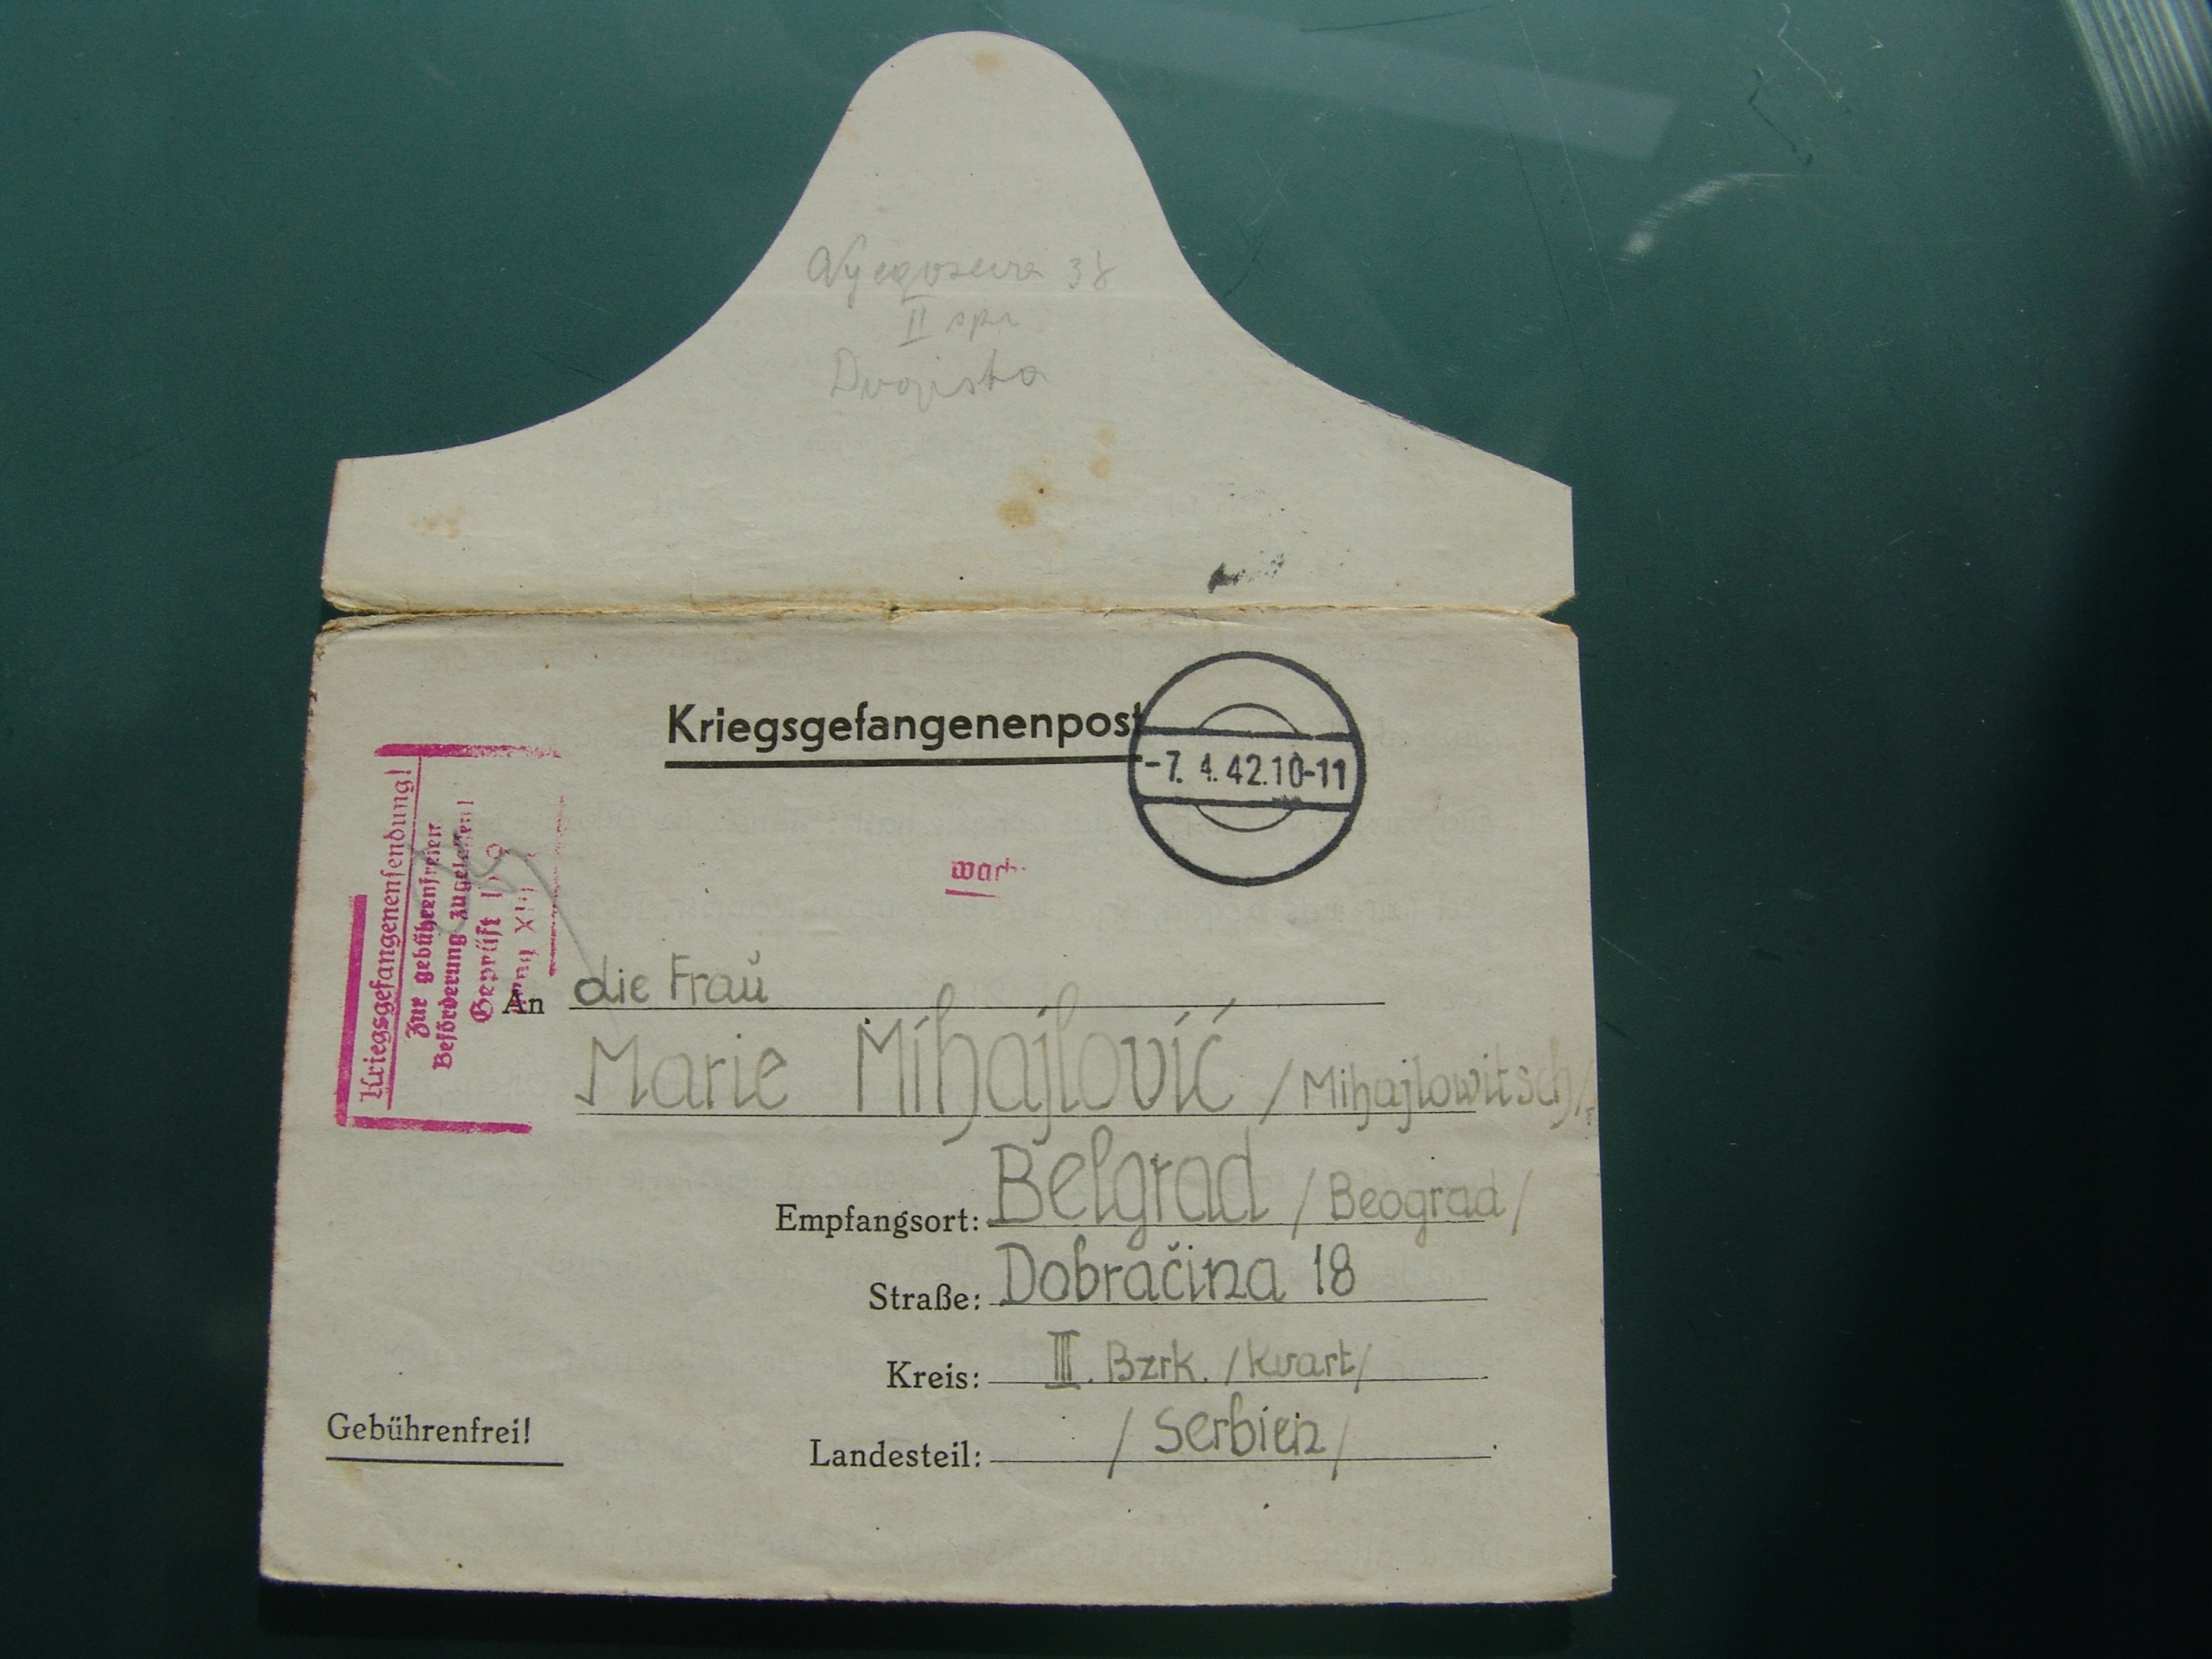 38
II
Kriegsgefangenenpost
-7. 4.42.10-11
Kriegsgefangenensendung!
Zur gebührenfreien
Beförderung zugelassen!
Geprüft
An die Frau
Marie Mihajlović /Mihajlowitsch/
Empfangsort: Belgrad /Beograd/
Straße: Dobračina 18
Kreis: III. Bzrk. /Kvart/
Landesteil: /Serbien/
Gebührenfrei!